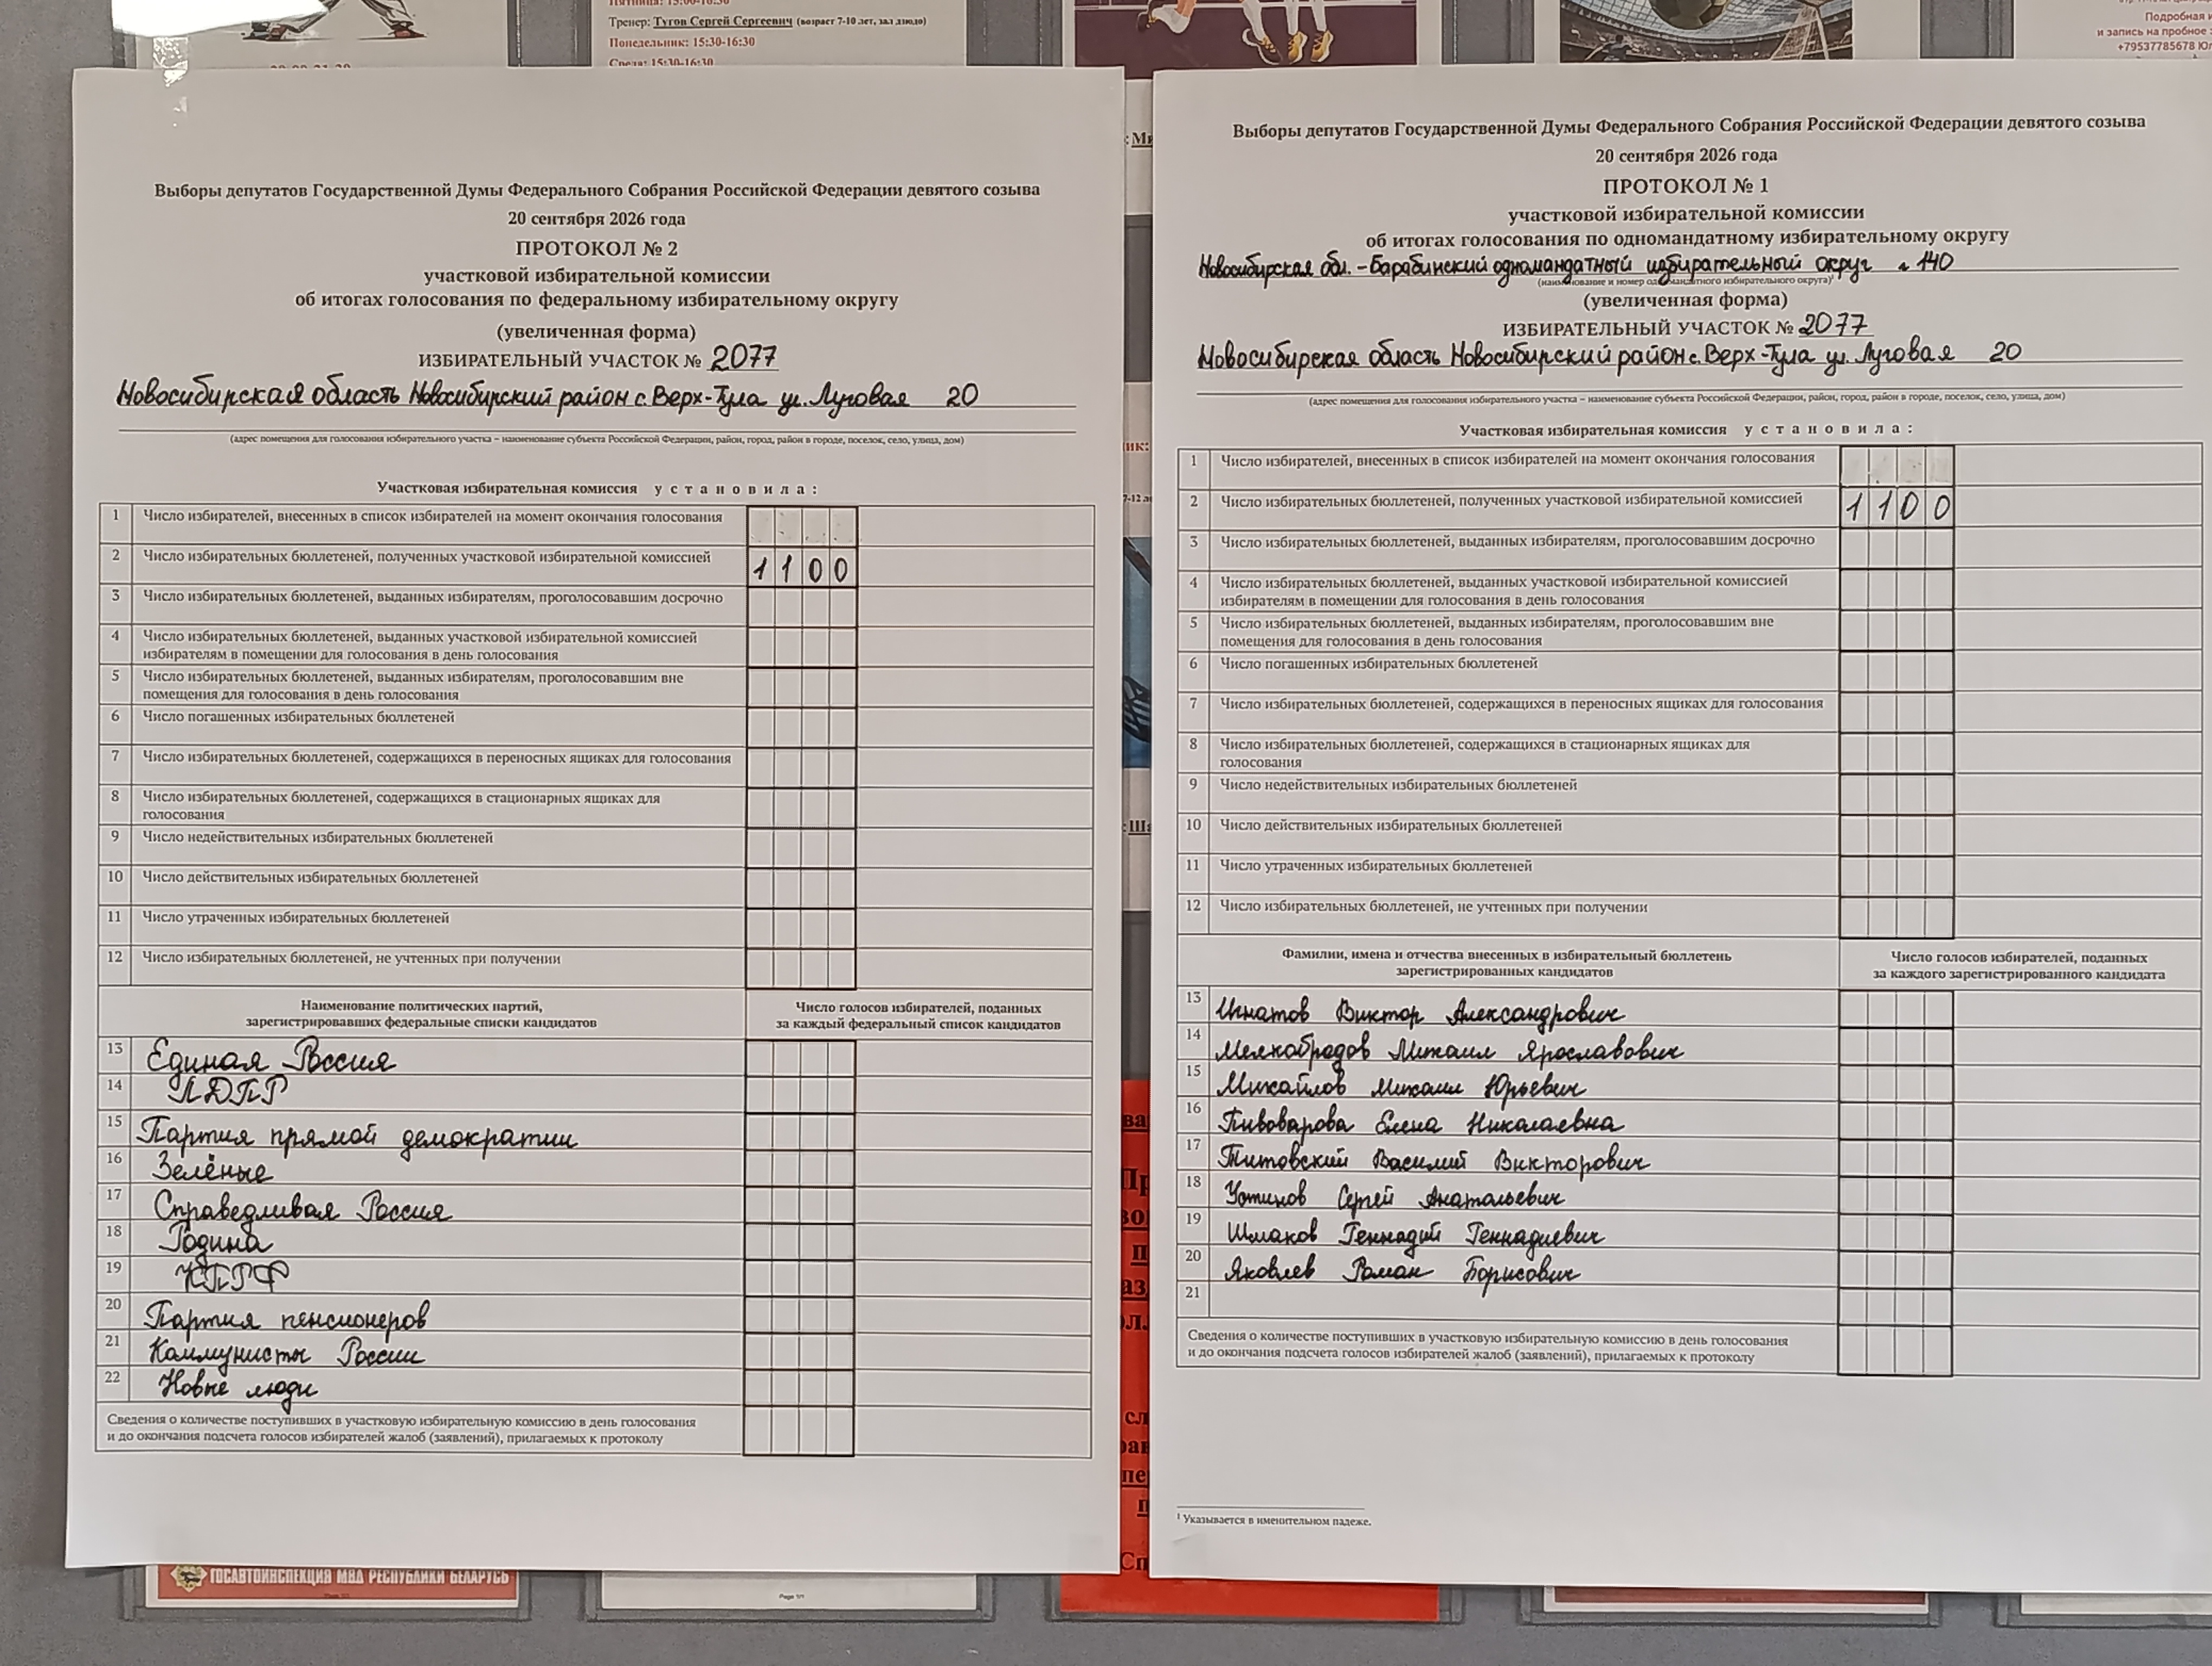 Пятница: 15:00-16:30
Тренер: Тугов Сергей Сергеевич (возраст 7-10 лет, зал дзюдо)
Понедельник: 15:30-16:30
Среда: 15:30-16:30
Подробная и
и запись на пробное
+79537785678 Юл
Выборы депутатов Государственной Думы Федерального Собрания Российской Федерации девятого созыва
20 сентября 2026 года
ПРОТОКОЛ № 2
участковой избирательной комиссии
об итогах голосования по федеральному избирательному округу
(увеличенная форма)
ИЗБИРАТЕЛЬНЫЙ УЧАСТОК № 2077
Новосибирская область Новосибирский район с. Верх-Тула ул. Луговая 20
(адрес помещения для голосования избирательного участка – наименование субъекта Российской Федерации, район, город, район в городе, поселок, село, улица, дом)
Участковая избирательная комиссия установила:
1 Число избирателей, внесенных в список избирателей на момент окончания голосования
2 Число избирательных бюллетеней, полученных участковой избирательной комиссией 1 1 0 0
3 Число избирательных бюллетеней, выданных избирателям, проголосовавшим досрочно
4 Число избирательных бюллетеней, выданных участковой избирательной комиссией
избирателям в помещении для голосования в день голосования
5 Число избирательных бюллетеней, выданных избирателям, проголосовавшим вне
помещения для голосования в день голосования
6 Число погашенных избирательных бюллетеней
7 Число избирательных бюллетеней, содержащихся в переносных ящиках для голосования
8 Число избирательных бюллетеней, содержащихся в стационарных ящиках для
голосования
9 Число недействительных избирательных бюллетеней
10 Число действительных избирательных бюллетеней
11 Число утраченных избирательных бюллетеней
12 Число избирательных бюллетеней, не учтенных при получении
Наименование политических партий,
зарегистрировавших федеральные списки кандидатов
Число голосов избирателей, поданных
за каждый федеральный список кандидатов
13 Единая Россия
14 ЛДПР
15 Партия прямой демократии
16 Зелёные
17 Справедливая Россия
18 Родина
19 КПРФ
20 Партия пенсионеров
21 Коммунисты России
22 Новые люди
Сведения о количестве поступивших в участковую избирательную комиссию в день голосования
и до окончания подсчета голосов избирателей жалоб (заявлений), прилагаемых к протоколу
Выборы депутатов Государственной Думы Федерального Собрания Российской Федерации девятого созыва
20 сентября 2026 года
ПРОТОКОЛ № 1
участковой избирательной комиссии
об итогах голосования по одномандатному избирательному округу
Новосибирская обл. - Барабинский одномандатный избирательный округ № 140
(наименование и номер одномандатного избирательного округа)¹
(увеличенная форма)
ИЗБИРАТЕЛЬНЫЙ УЧАСТОК № 2077
Новосибирская область Новосибирский район с. Верх-Тула ул. Луговая 20
(адрес помещения для голосования избирательного участка – наименование субъекта Российской Федерации, район, город, район в городе, поселок, село, улица, дом)
Участковая избирательная комиссия установила:
1 Число избирателей, внесенных в список избирателей на момент окончания голосования
2 Число избирательных бюллетеней, полученных участковой избирательной комиссией 1 1 0 0
3 Число избирательных бюллетеней, выданных избирателям, проголосовавшим досрочно
4 Число избирательных бюллетеней, выданных участковой избирательной комиссией
избирателям в помещении для голосования в день голосования
5 Число избирательных бюллетеней, выданных избирателям, проголосовавшим вне
помещения для голосования в день голосования
6 Число погашенных избирательных бюллетеней
7 Число избирательных бюллетеней, содержащихся в переносных ящиках для голосования
8 Число избирательных бюллетеней, содержащихся в стационарных ящиках для
голосования
9 Число недействительных избирательных бюллетеней
10 Число действительных избирательных бюллетеней
11 Число утраченных избирательных бюллетеней
12 Число избирательных бюллетеней, не учтенных при получении
Фамилии, имена и отчества внесенных в избирательный бюллетень
зарегистрированных кандидатов
Число голосов избирателей, поданных
за каждого зарегистрированного кандидата
13 Игнатов Виктор Александрович
14 Мелкобродов Михаил Ярославович
15 Михайлов Михаил Юрьевич
16 Пивоварова Елена Николаевна
17 Титовский Василий Викторович
18 Устинов Сергей Анатольевич
19 Шмаков Геннадий Геннадиевич
20 Яковлев Роман Борисович
21
Сведения о количестве поступивших в участковую избирательную комиссию в день голосования
и до окончания подсчета голосов избирателей жалоб (заявлений), прилагаемых к протоколу
¹ Указывается в именительном падеже.
ГОСАВТОИНСПЕКЦИЯ МВД РЕСПУБЛИКИ БЕЛАРУСЬ
Page 1/1